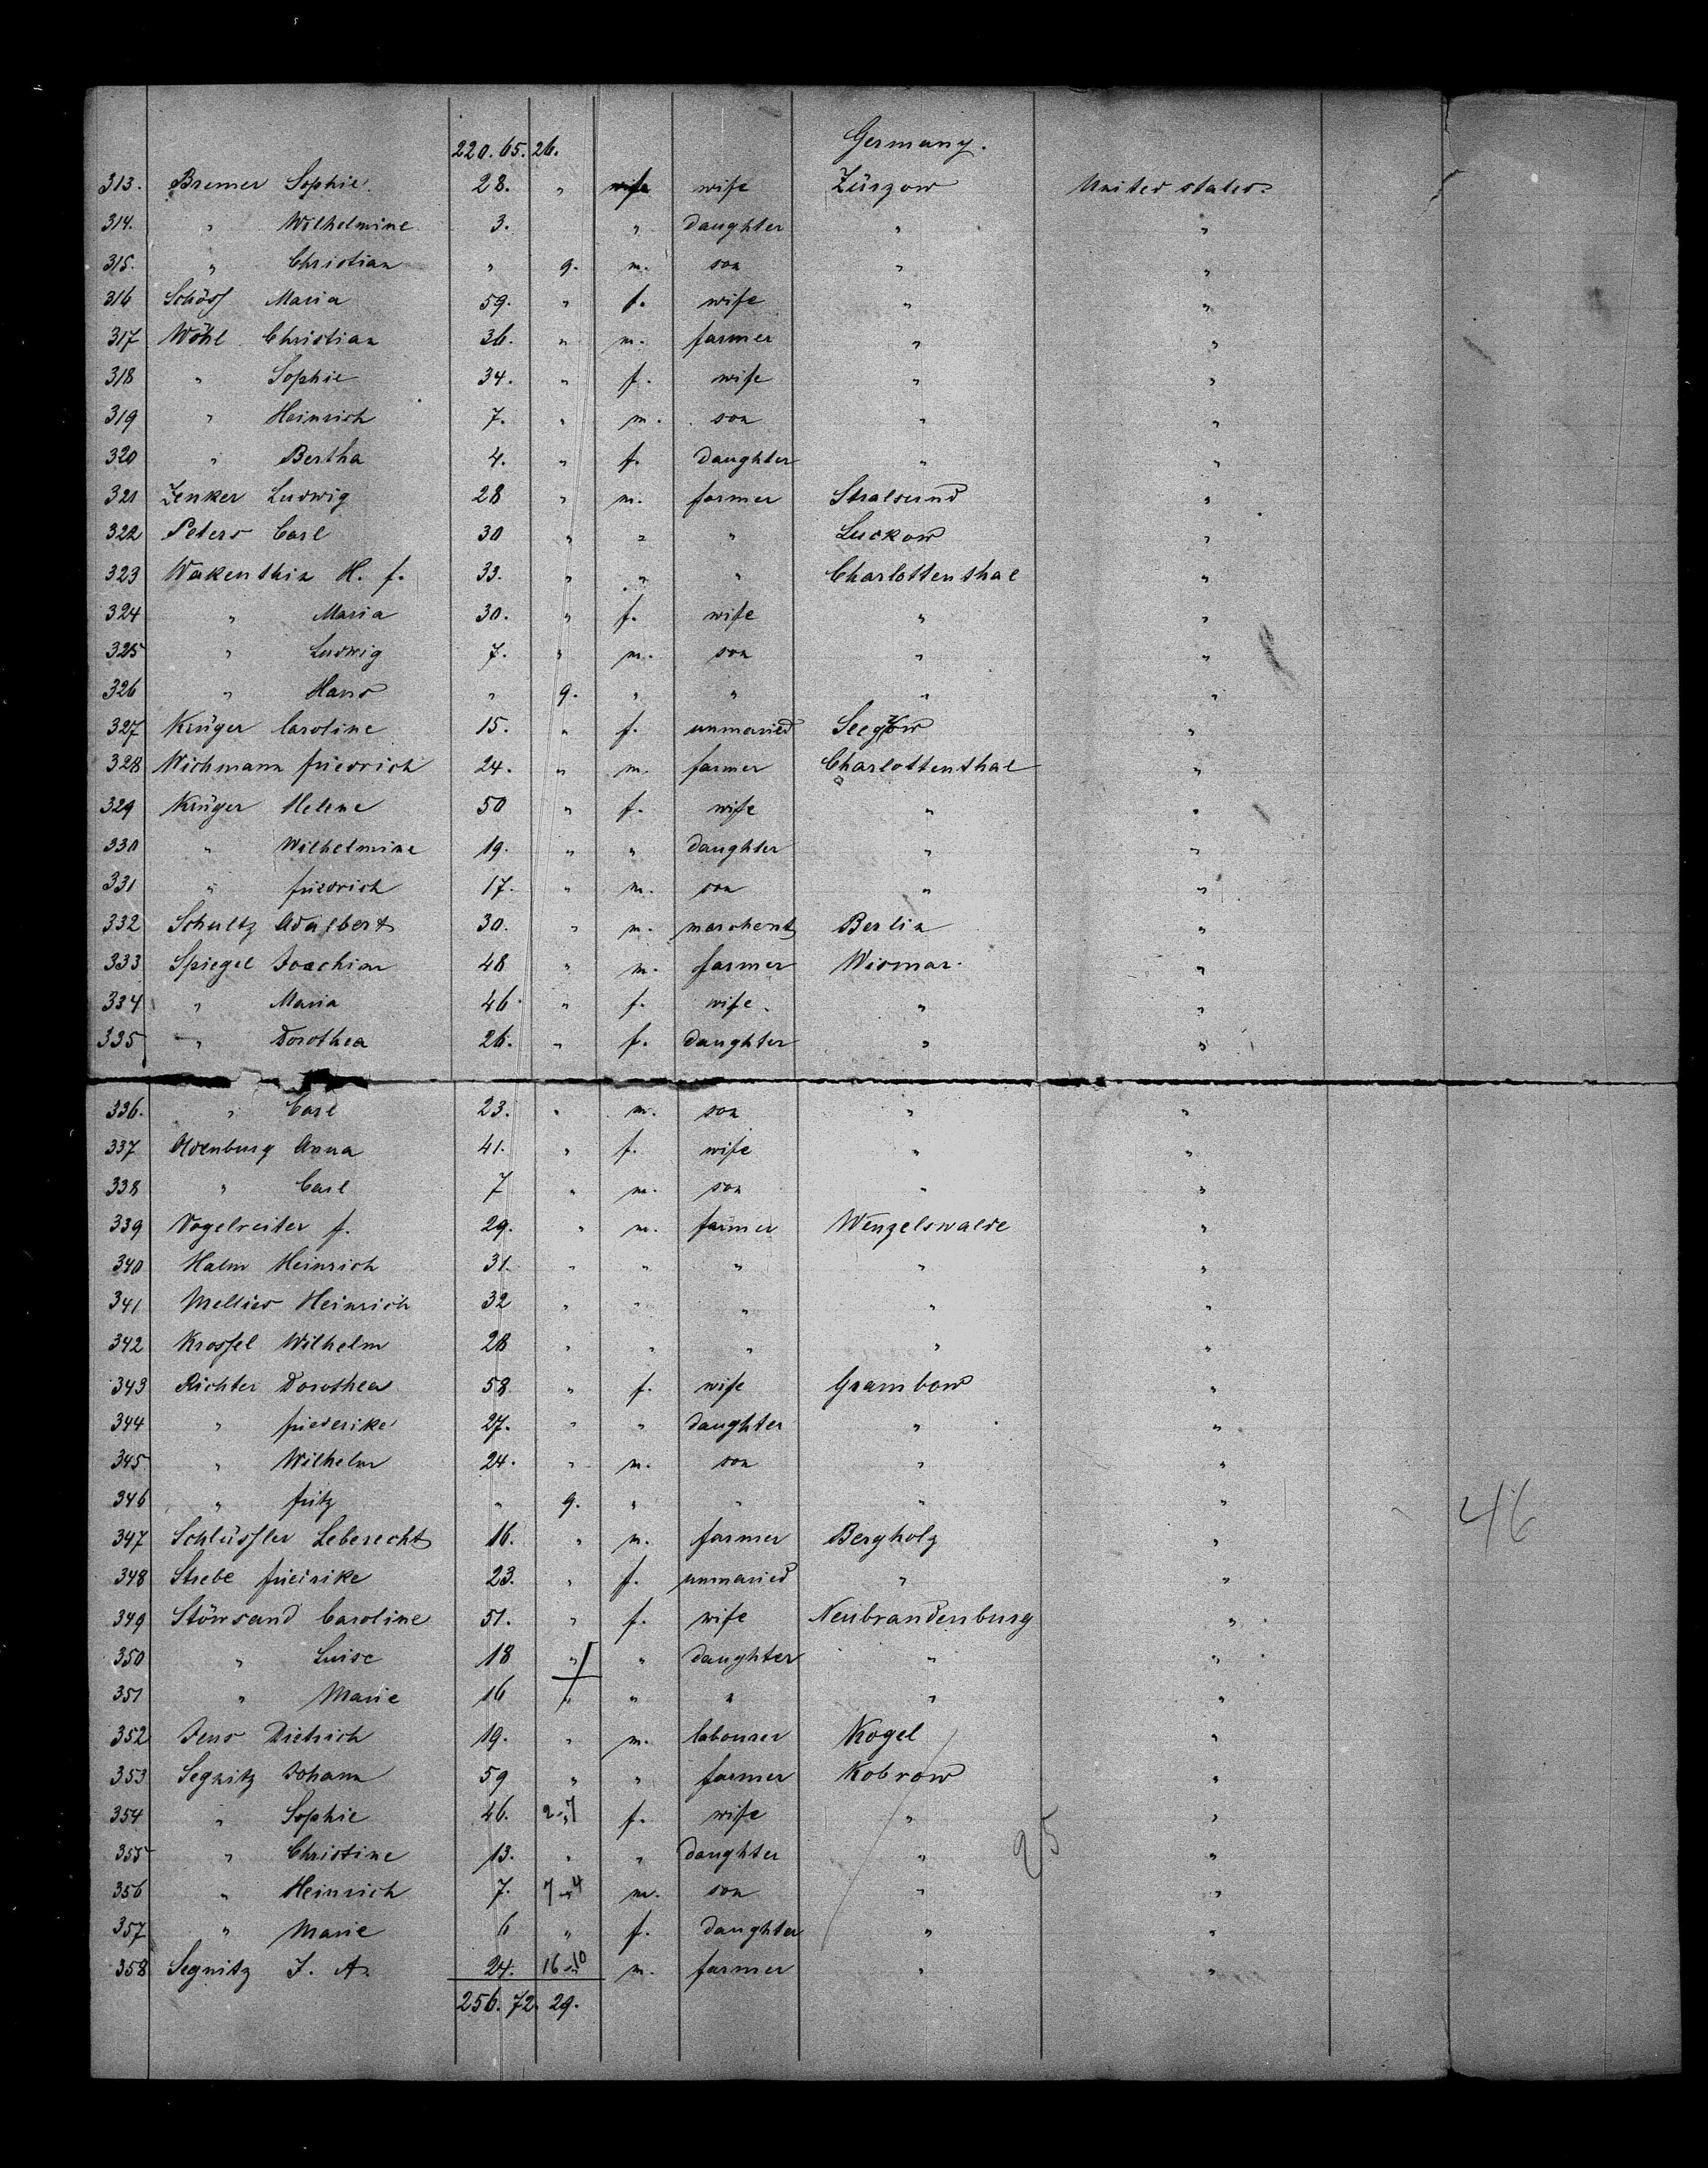 220. 65. 26. Germany.
313. Bremer Sophie. 28. " wife wife Züszow United states.
314. " Wilhelmine 3. " daughter " "
315. " Christian " 9. m. son " "
316 Schöss Maria 59. " f. wife " "
317 Wöhl Christian 36. " m. farmer " "
318 " Sophie 34. " f. wife " "
319 " Heinrich 7. " m. son " "
320 " Bertha 4. " f. daughter " "
321 Zenker Ludwig 28 " m. farmer Stralsund "
322 Peters Carl 30 " " " Luckow "
323 Wakenthin H. f. 33. " " " Charlottenthal "
324 " Maria 30. " f. wife " "
325 " Ludwig 7. " m. son " "
326 " Hans " 9. " " " "
327 Krüger Caroline 15. " f. unmaried "
328 Wichmann friedrich 24. " m. farmer Charlottenthal "
329 Krüger Helene 50 " f. wife " "
330 " Wilhelmine 19. " " daughter " "
331 " friedrich 17. " m. son " "
332 Schultz Adalbert 30. " m. marchent Berlin "
333 Spiegel Joachim 48 " m. farmer Wismar. "
334 " Maria 46. " f. wife. " "
335 " Dorothea 26. " f. daughter " "
336. " Carl 23. " m. son " "
337 Oldenburg Anna 41. " f. wife " "
338 " Carl 7 " m. son " "
339 Vogelreiter f. 29. " m. farmer Wenzelswalde "
340 Halm Heinrich 31. " " " " "
341 Mellies Heinrich 32 " " " " "
342 Krossel Wilhelm 28 " " " " "
343 Richter Dorothea 58 " f. wife Grambow "
344 " friederike 27. " " daughter " "
345 " Wilhelm 24. " m. son " "
346 " fritz " 9. " " " " 46
347 Schlüssler Leberecht 16. " m. farmer Bergholz "
348 Strebe frieirike 23. " f. unmaried " "
349 Störsand Caroline 51. " f. wife Neubrandenburg "
350 " Luise 18 " " daughter " "
351 " Marie 16 " " " " "
352 Jens Dietrich 19. " m. labourer Kogel "
353 Segnitz Johann 59 " " farmer Kobrow "
354 " Sophie 46. 2-7 f. wife " "
355 " Christine 13. " " daughter " 25 "
356 " Heinrich 7. 7-4 m. son " "
357 " Marie 6 " f. daughter " "
358 Segnitz J. A. 24. 16-10 m. farmer " "
256. 72. 29.